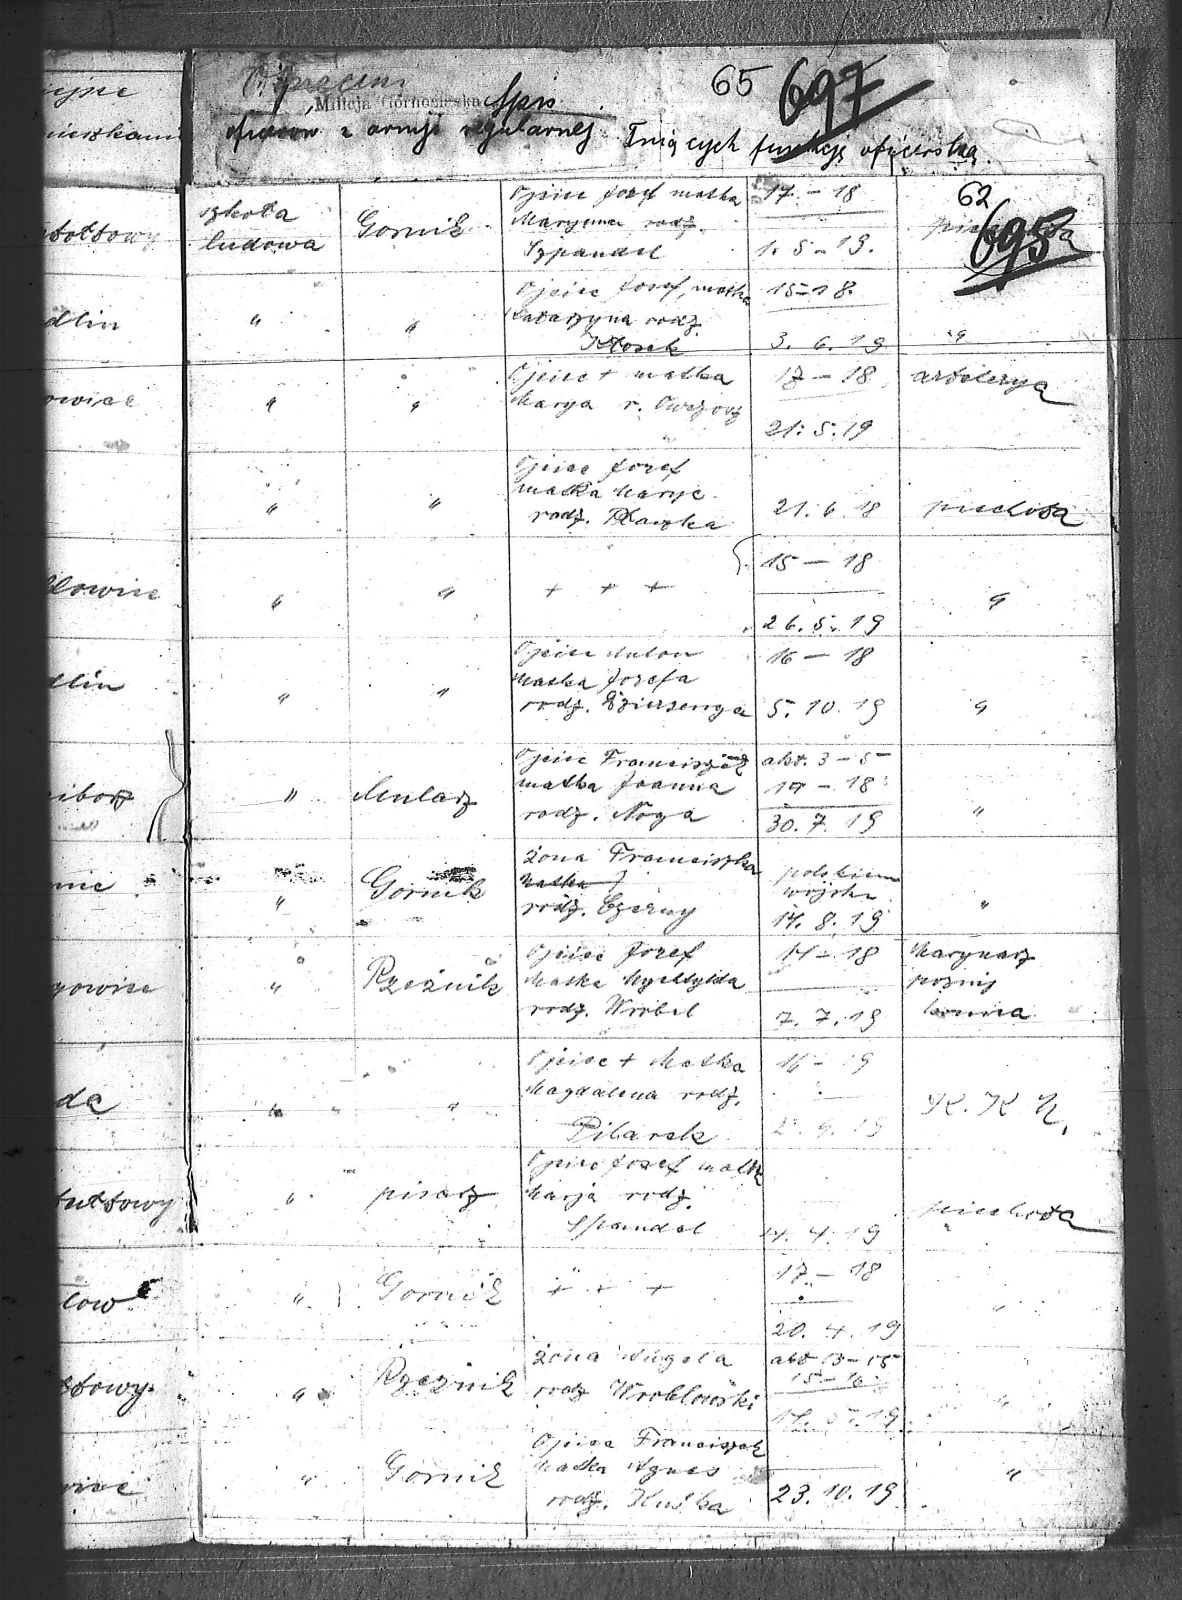 65 697
Milicja Górnośląska Spis
oficerów z armji regularnej
funkcję oficerską.
62
695
szkoła
ludowa
Gornik
Ojciec Jozef matka
Maryanna rodz.
Szpandel
17 - 18
1. 5 - 19.
ołtowy
dlin
"
"
Ojciec Josef, matka
Katarzyna rodz.
Kłosek
15-18.
3. 6. 19
"
owice
"
"
Ojciec + matka
Marya r.
17 - 18
21. 5. 19
artylerya
"
"
Ojciec Jozef
matka Marye
rodz.
21. 6. 18
piechota
lowice
"
"
+ + +
15 - 18
26. 5. 19
"
dlin
"
"
Ojciec Anton
Matka Jozefa
rodz. Dziersenga
16 - 18
5. 10. 19
"
iborz
"
Mularz
Ojciec Franciszek
matka Joanna
rodz. Noga
akt. 3 - 5
17 - 18
30. 7. 19
"
nie
"
Gornik
żona Franciszka
Matka
rodz. Czerny
polskiem
wojsku
14. 8. 19
"
owice
"
Rzeźnik
Ojciec Jozef
Matka
rodz. Wróbel
14 - 18
7. 7. 19
Marynarz
"
"
Ojciec + Matka
Magdalena rodz.
Pilarek
16 - 19
K. K. N.
łtowy
"
pisarz
Ojciec Josef matka
Marja rodz.
Spandel
14. 4. 19
piechota
low
"
Gornik
+ + +
17 - 18
20. 4. 19
"
towy
"
Rzeznik
żona Angela
rodz Wroblowski
akt 13 - 15
15 - 16
"
wice
"
Gornik
Ojciec Franciszek
Matka Agnes
rodz. Kuśka
23. 10. 19
"